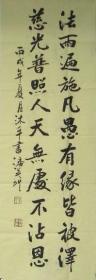 法雨遍施凡愚有緣皆被澤
慈光普照人天無處不沾恩
丙戌年夏月沐手書